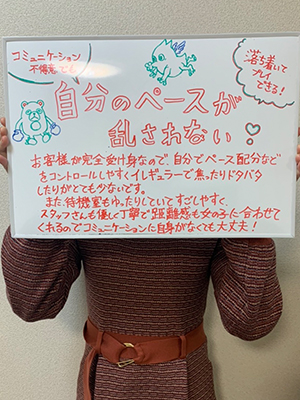 コミュニケーション
不得意でも
落ち着いて
プレイ
できる！
自分のペースが
乱されない！
お客様が完全受け身なので、自分でペース配分など
をコントロールしやすくイレギュラーで焦ったりドタバタ
したりがとても少ないです。
また、待機室もゆったりしていてすごしやすく、
スタッフさんも優しく丁寧で距離感も女の子に合わせて
くれるのでコミュニケーションに自身がなくても大丈夫！